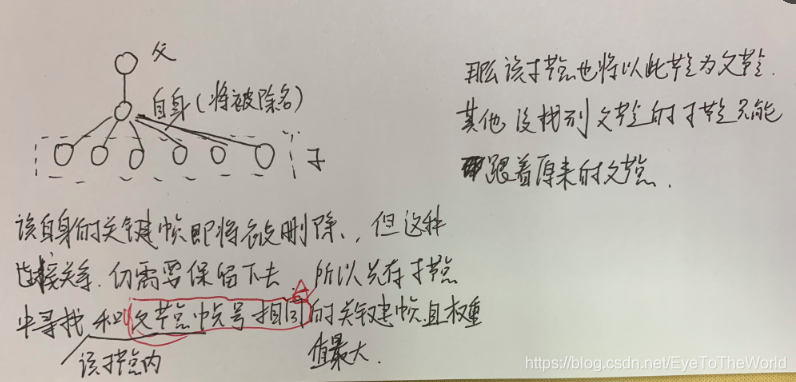 父
自身(将被除名)
子
该自身的关键帧即将被删除，但这种
连接关系仍需要保留下去．所以先在子节点
中寻找和父节点帧号相同的关键帧且权重
值最大．
该子节点内
那么该子节点也将以此节点为父节点．
其他没找到父节点的子节点只能
跟着原来的父节点．
https://blog.csdn.net/EyeToTheWorld